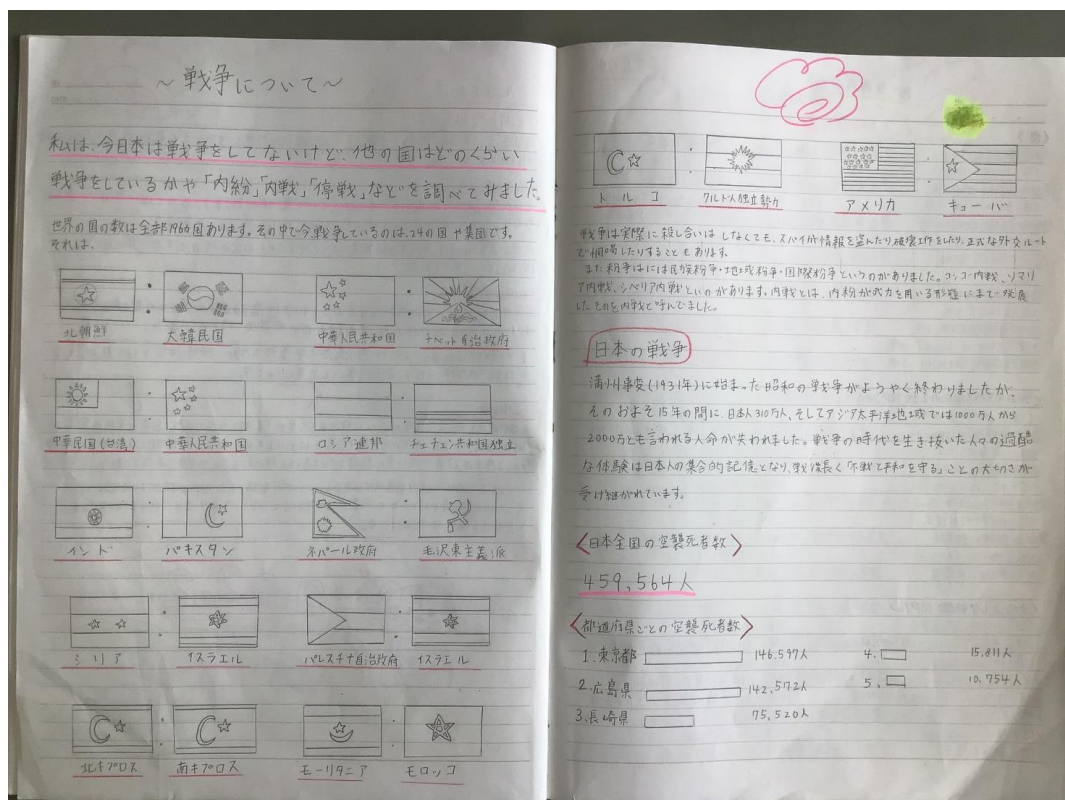 ～戦争について～
私は、今日本は戦争をしてないけど、他の国はどのくらい
戦争をしているかや「内紛」「内戦」「停戦」などを調べてみました。
世界の国の数は全部196ヵ国あります。その中で今、戦争しているのは、24の国や集団です。
それは、
北朝鮮 : 大韓民国 中華人民共和国 : チベット自治政府
中華民国(台湾) : 中華人民共和国 ロシア連邦 : チェチェン共和国独立
インド : パキスタン ネパール政府 : 毛沢東主義派
シリア : イスラエル パレスチナ自治政府 : イスラエル
北キプロス : 南キプロス モーリタニア : モロッコ
トルコ : クルド人独立勢力 アメリカ : キューバ
戦争は実際に殺し合いはしなくても、スパイが情報を盗んだり、破壊工作をしたり、正式な外交ルート
で恫喝したりすることもあります。
また紛争はには民族紛争・地域紛争・国際紛争というのがありました。コンゴ内戦、ソマリ
ア内戦、シベリア内戦といのがあります。内戦とは、内紛が武力を用いる形態にまで発展
したものを内戦と呼んでました。
日本の戦争
満州事変(1931年)に始まった昭和の戦争がようやく終わりましたが、
そのおよそ15年の間に、日本人310万人、そしてアジア太平洋地域では1000万人から
2000万とも言われる人命が失われました。戦争の時代を生き抜いた人々の過酷
な体験は日本人の集合的記憶となり、戦後長く「不戦と平和を守る」ことの大切さが
受け継がれています。
〈日本全国の空襲死者数〉
459,564人
〈都道府県ごとの空襲死者数〉
1.東京都 146.597人 4. 15,811人
2.広島県 142,572人 5. 10.754人
3.長崎県 75,520人